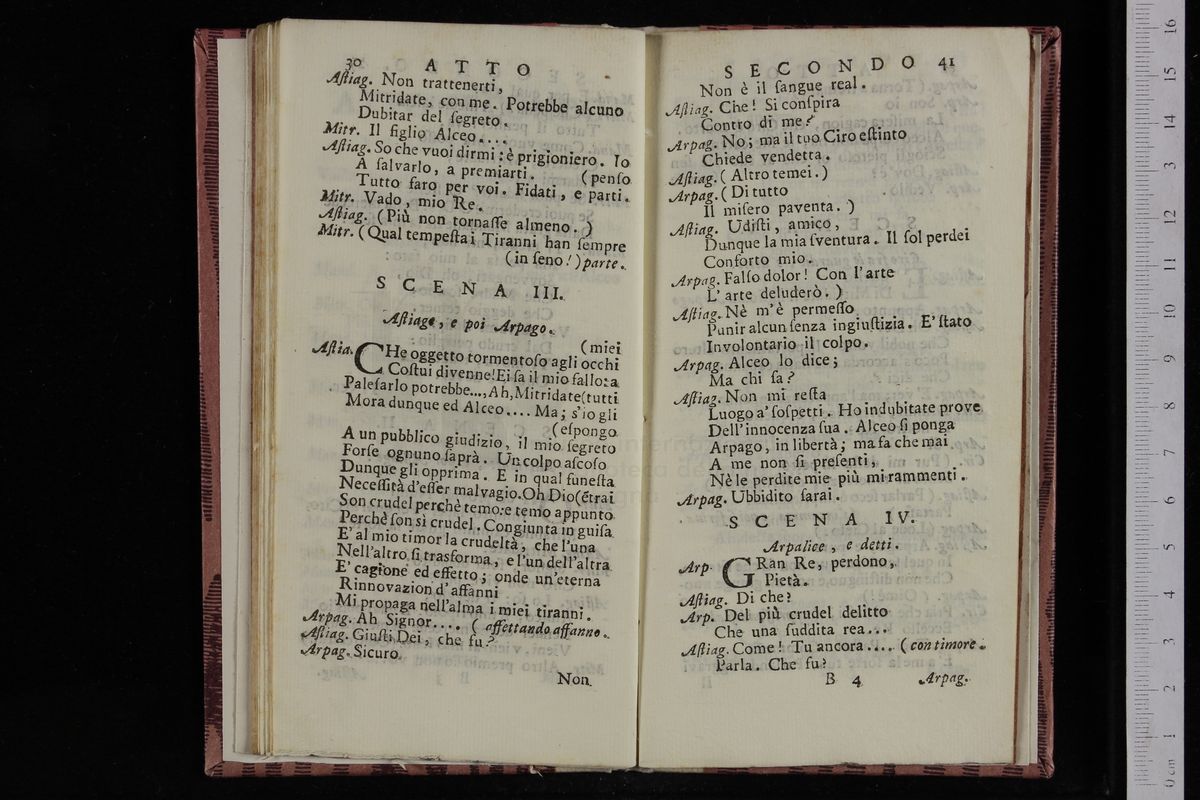 30 ATTO
Aſtiag. Non trattenerti,
Mitridate, con me. Potrebbe alcuno
Dubitar del ſegreto.
Mitr. Il figlio Alceo....
Aſtiag. So che vuoi dirmi: è prigioniero. Io
A ſalvarlo, a premiarti. (penſo
Tutto farò per voi. Fidati, e parti.
Mitr. Vado, mio Re.
Aſtiag. (Più non tornaſſe almeno.)
Mitr. (Qual tempeſta i Tiranni han ſempre
(in ſeno!) parte.
SCENA III.
Aſtiage, e poi Arpago.
(miei
Aſtia. CHe oggetto tormentoſo agli occhi
Coſtui divenne! Ei ſa il mio fallo: a
Paleſarlo potrebbe..., Ah, Mitridate (tutti
Mora dunque ed Alceo.... Ma; s'io gli
(eſpongo
A un pubblico giudizio, il mio ſegreto
Forſe ognuno ſaprà. Un colpo aſcoſo
Dunque gli opprima. E in qual funeſta
Neceſſità d'eſſer malvagio. Oh Dio (étrai
Son crudel perchè temo: e temo appunto
Perchè ſon sì crudel. Congiunta in guiſa
E' al mio timor la crudeltà, che l'una
Nell'altro ſi trasforma, e l'un dell'altra
E' cagione ed effetto; onde un'eterna
Rinnovazion d'affanni
Mi propaga nell'alma i miei tiranni.
Arpag. Ah Signor.... (affettando affanno.
Aſtiag. Giuſti Dei, che fu?
Arpag. Sicuro
Non
SECONDO 41
Non è il ſangue real.
Aſtiag. Che! Si conſpira
Contro di me?
Arpag. No; ma il tuo Ciro eſtinto
Chiede vendetta.
Aſtiag. (Altro temei.)
Arpag. (Di tutto
Il miſero paventa.)
Aſtiag. Udiſti, amico,
Dunque la mia ſventura. Il ſol perdei
Conforto mio.
Arpag. Falſo dolor! Con l'arte
L'arte deluderò.)
Aſtiag. Nè m'è permeſſo
Punir alcun ſenza ingiuſtizia. E' ſtato
Involontario il colpo.
Arpag. Alceo lo dice;
Ma chi ſa?
Aſtiag. Non mi reſta
Luogo a' ſoſpetti. Ho indubitate prove
Dell'innocenza ſua. Alceo ſi ponga
Arpago, in libertà; ma fa che mai
A me non ſi preſenti,
Nè le perdite mie più mi rammenti.
Arpag. Ubbidito ſarai.
SCENA IV.
Arpalice, e detti.
Arp. GRan Re, perdono,
Pietà.
Aſtiag. Di che?
Arp. Del più crudel delitto
Che una ſuddita rea...
Aſtiag. Come! Tu ancora.... (con timore.
Parla. Che fu?
B 4 Arpag.